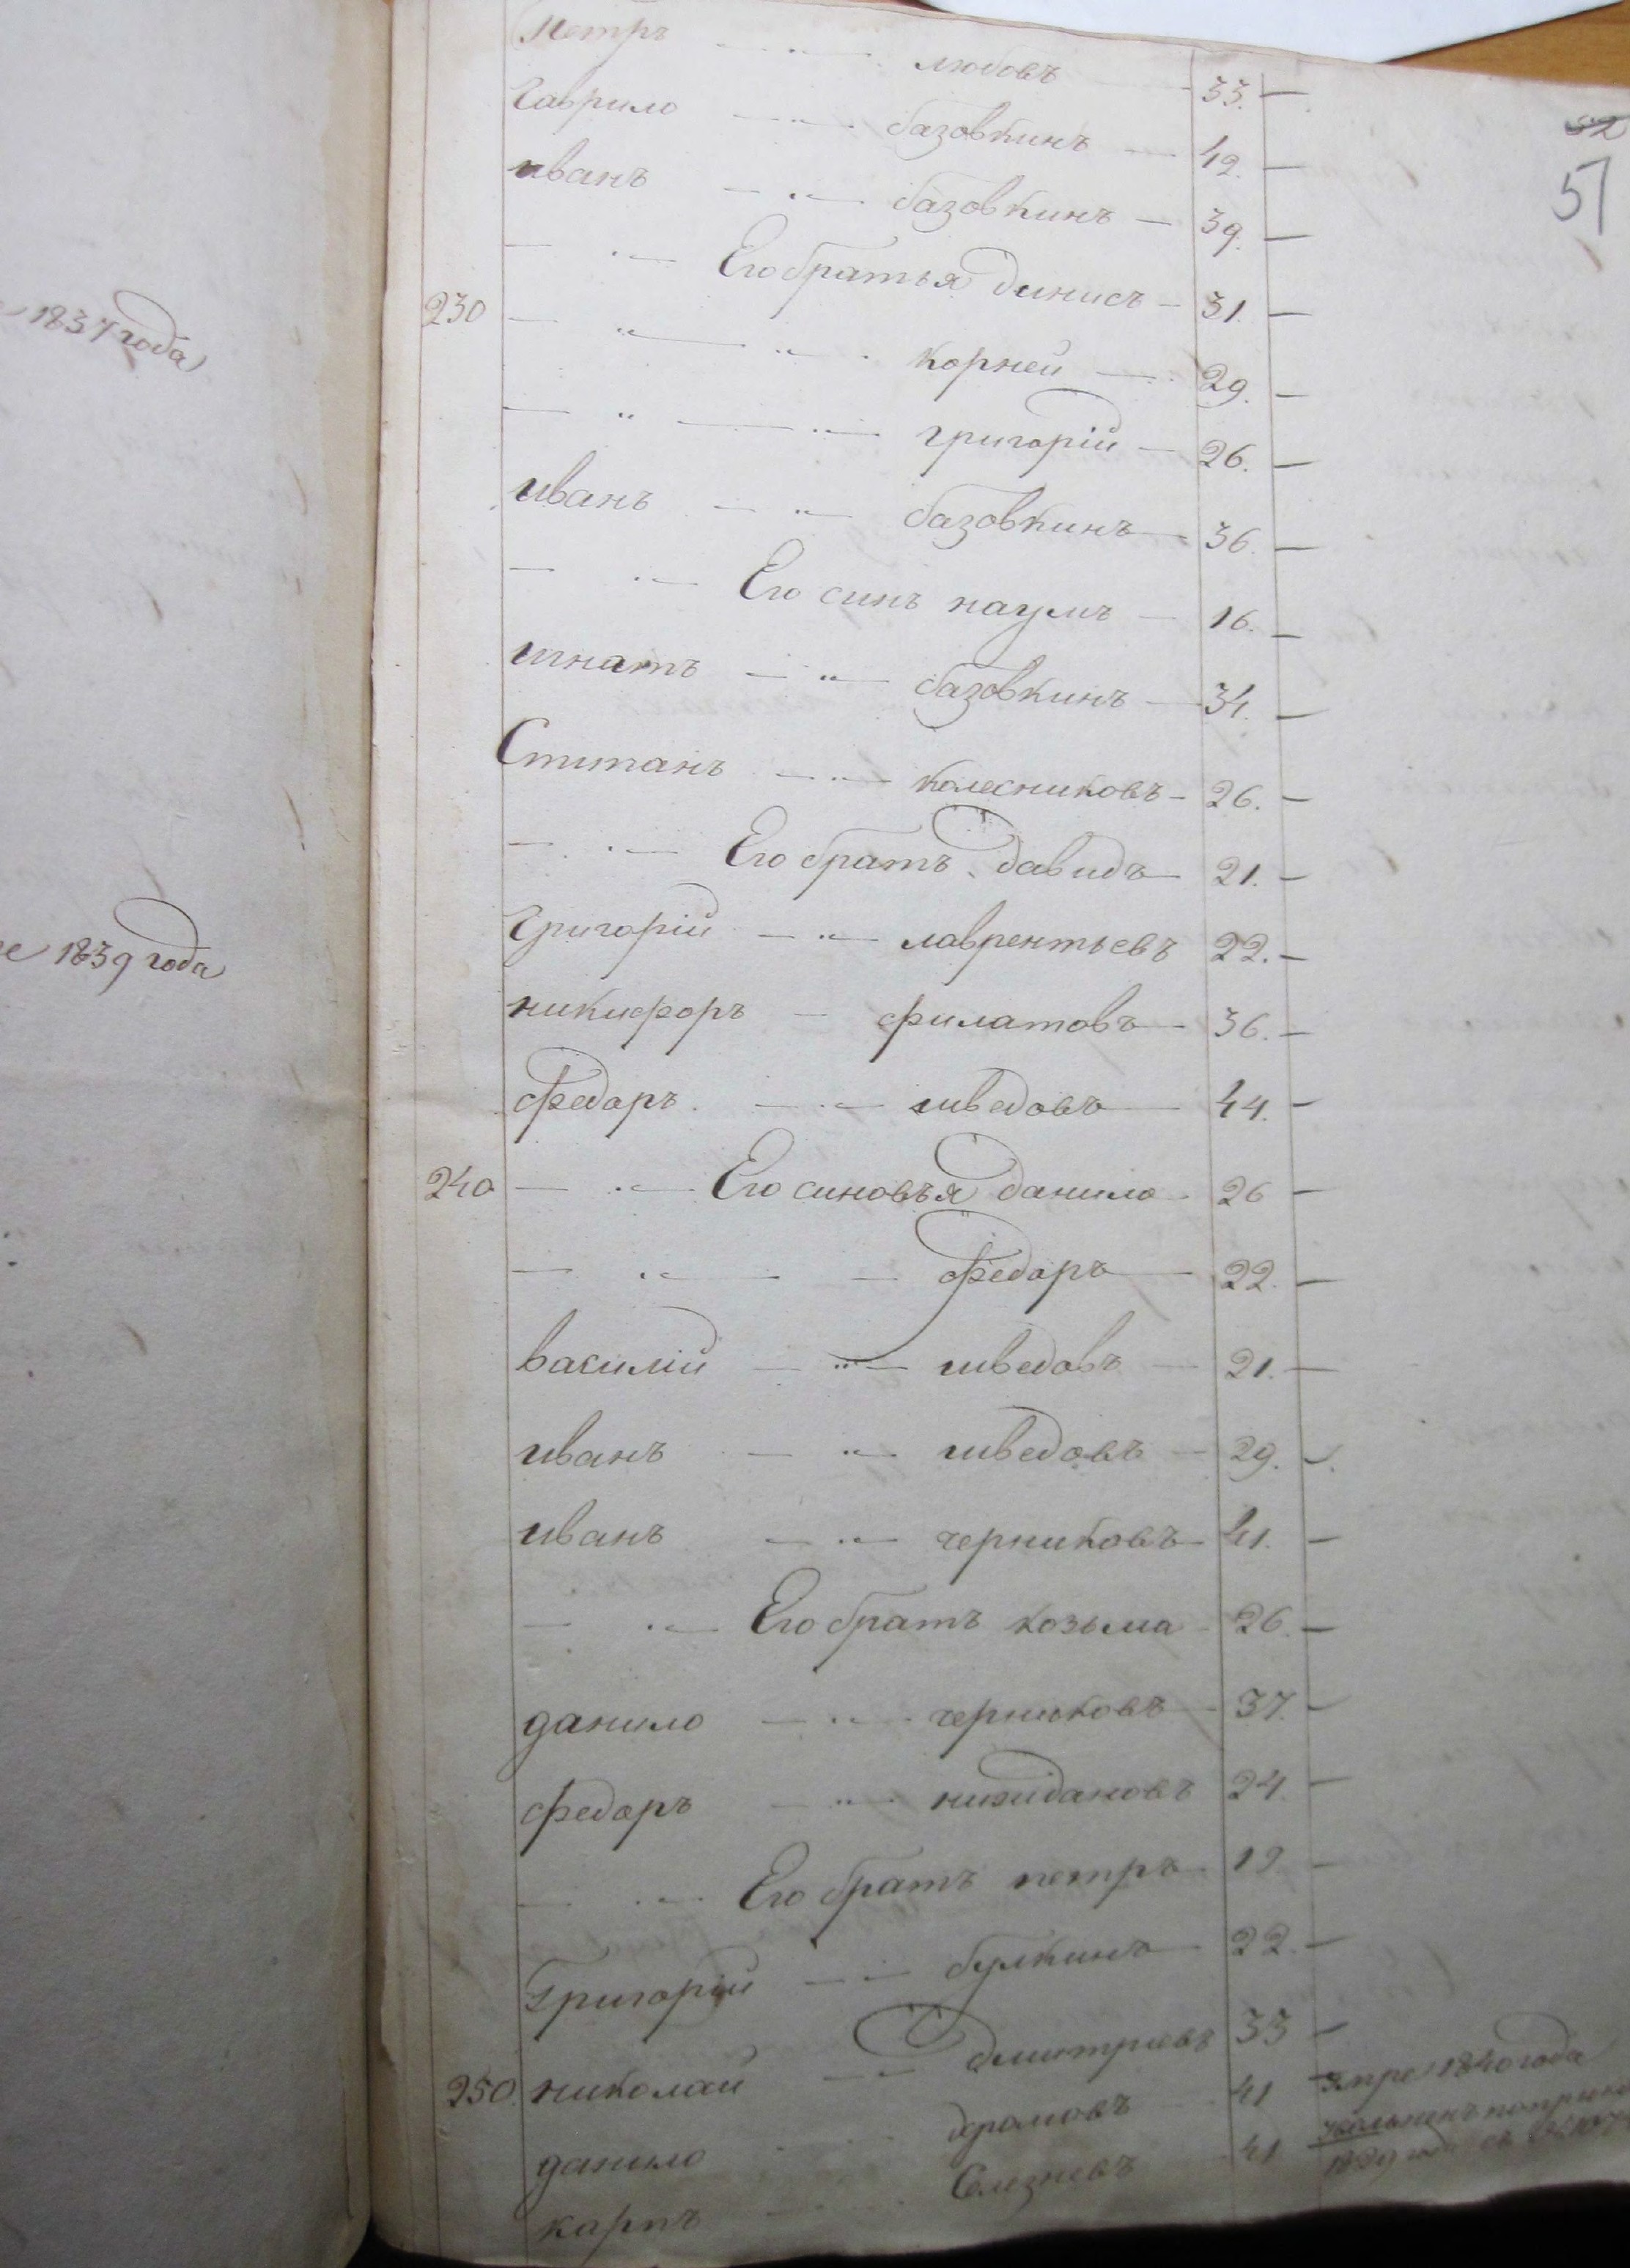 52
51
Петръ любовъ 33.
Гаврило базовкинъ 42.
иванъ базовкинъ 39.
Его братья динисъ 31.
230 корней 29.
григорій 26.
иванъ базовкинъ 36.
Его синъ наумъ 16.
игнатъ базовкинъ 34.
Стипанъ колесниковъ 26.
Его братъ давидъ 21.
Григорій лаврентьевъ 22.
никифоръ филатовъ 36.
федаръ шведовъ 44.
240 Его синовъя данило 26
федаръ 22.
василій шведовъ 21.
иванъ шведовъ 29.
иванъ черниковъ 41.
Его братъ козьма 26.
данило черниковъ 37.
федаръ нижидановъ 24.
Его братъ петръ 19.
Григорій булкинъ 22.
250. николай дмитриевъ 33
данило 41 Умре 1840 года
карпъ Слезневъ 41
1839
1837 года
е 1839 года